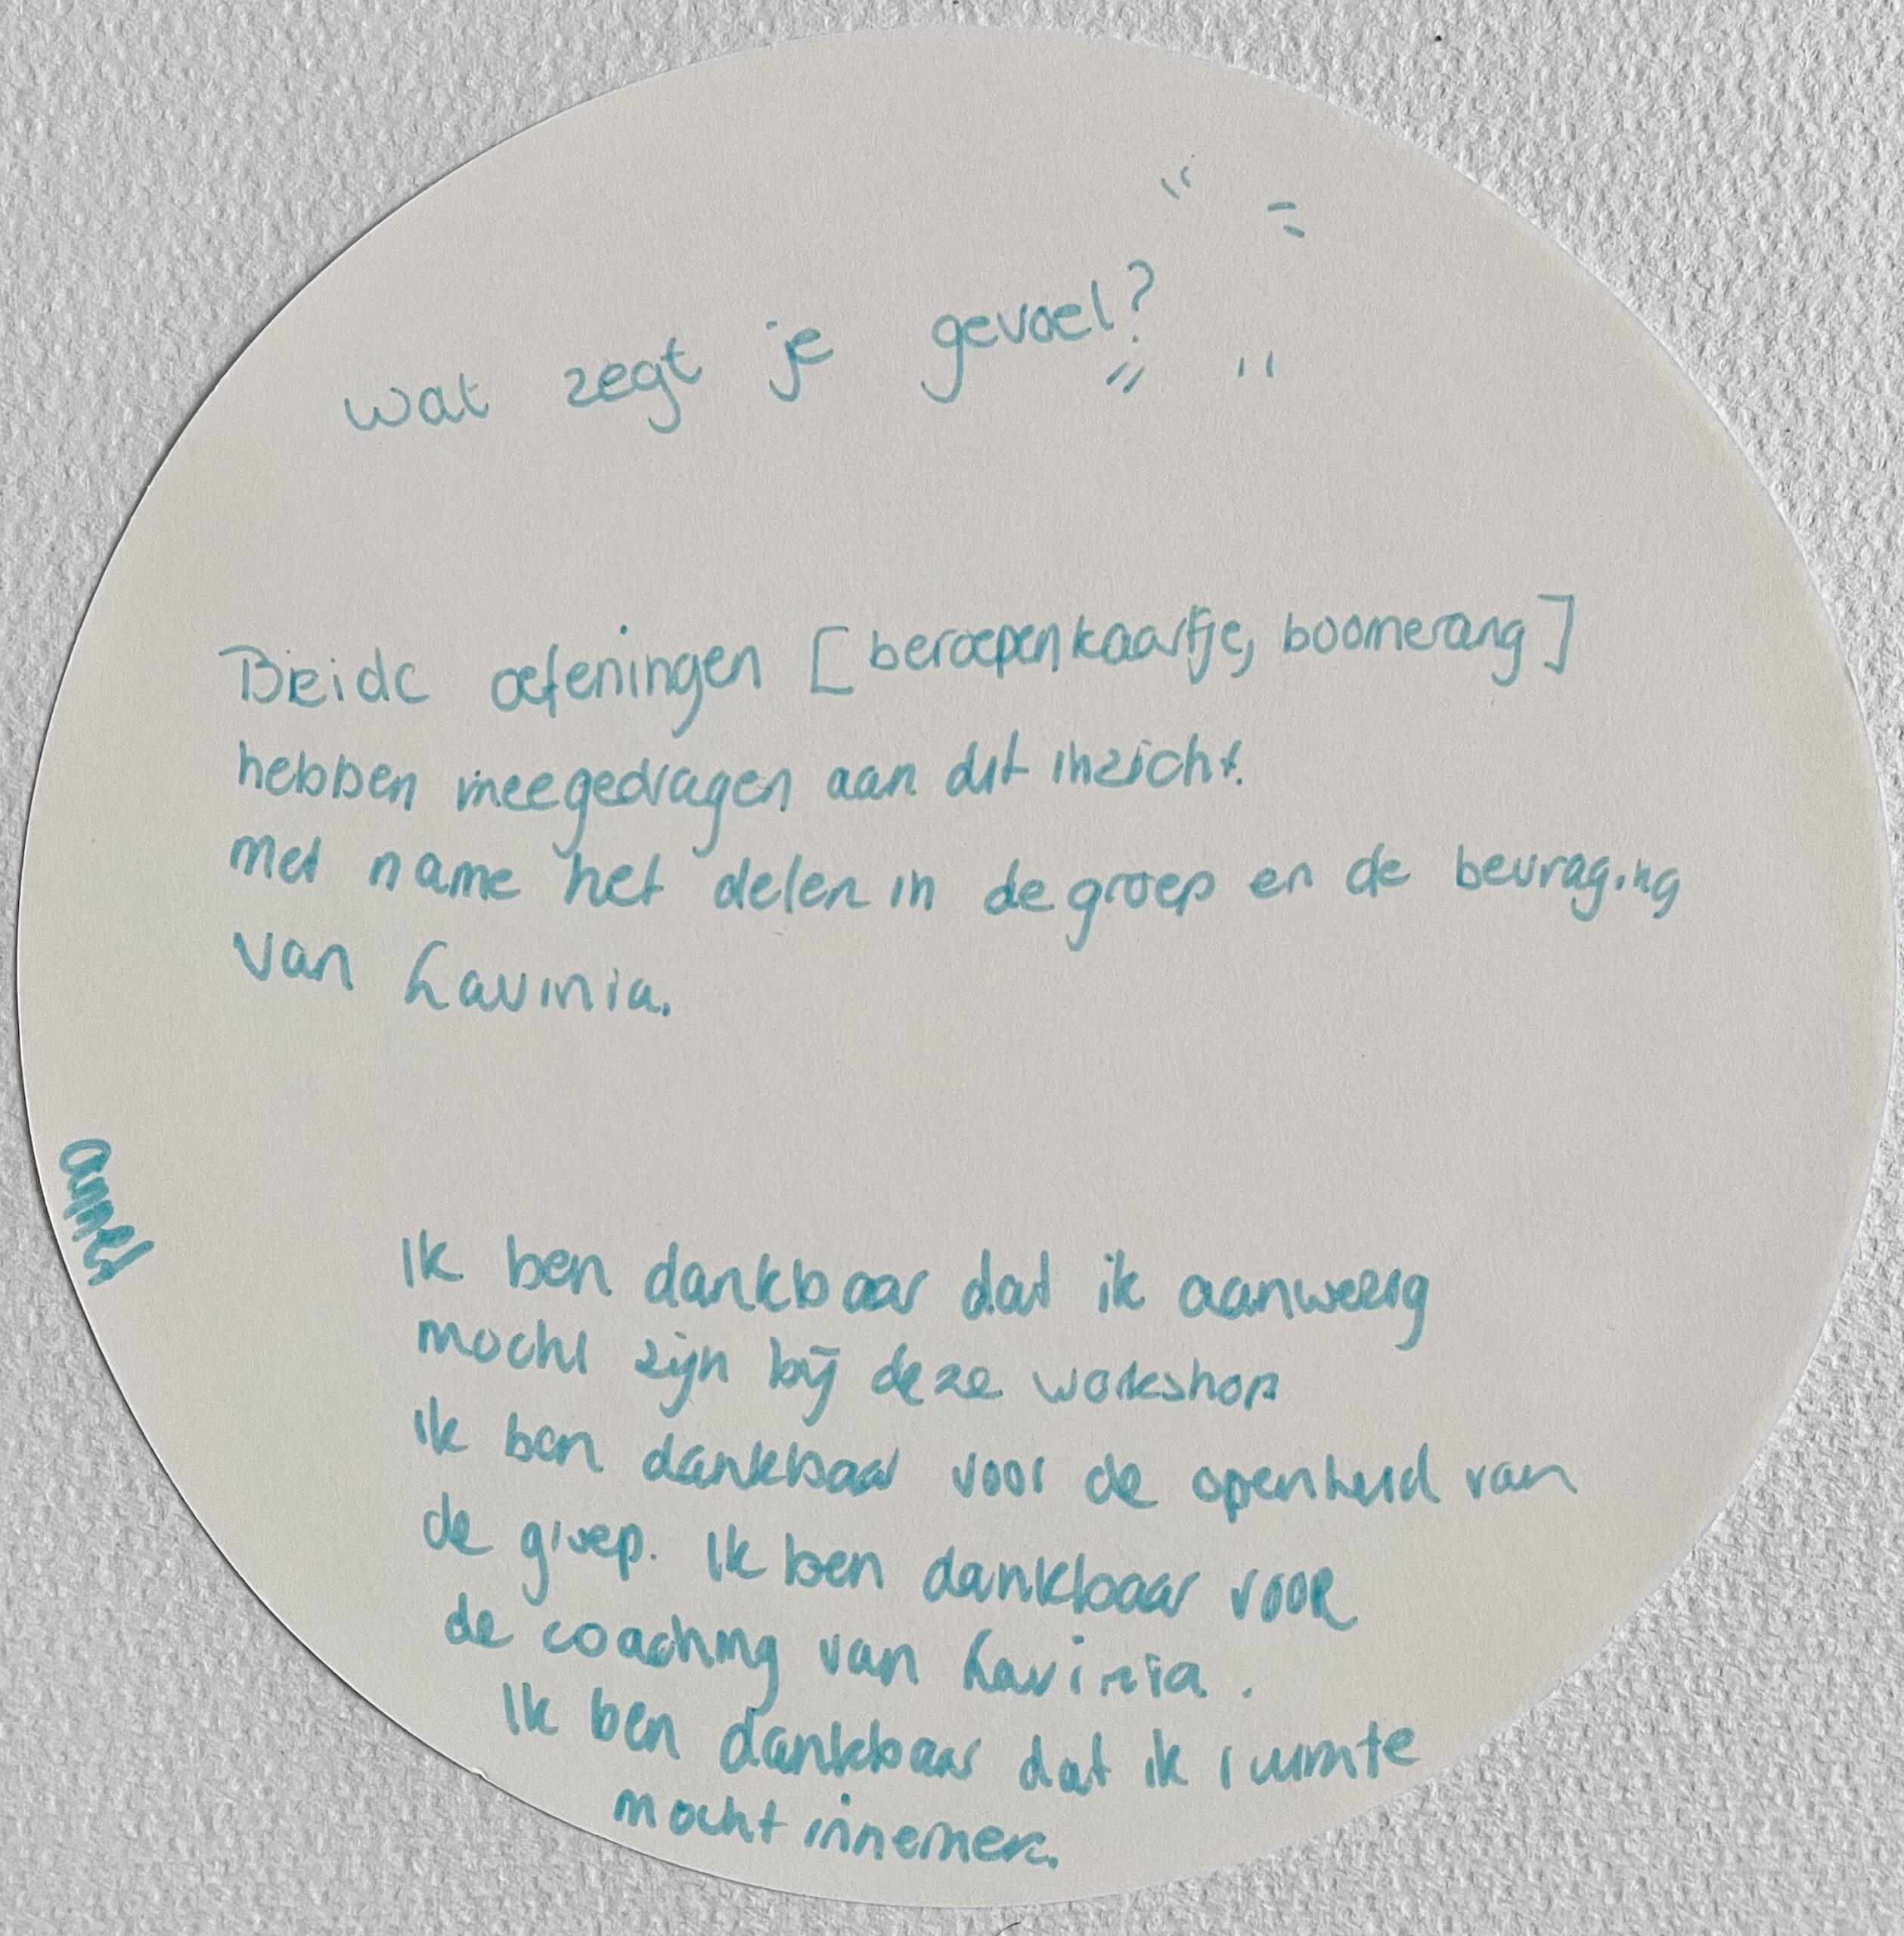 wat zegt je gevoel?
Beide oefeningen [beroepenkaartje, boomerang]
hebben meegedragen aan dit inzicht.
met name het delen in de groep en de bevraging
van Lavinia.
Ik ben dankbaar dat ik aanwezig
mocht zijn bij deze workshop
Ik ben dankbaar voor de openheid van
de groep. Ik ben dankbaar voor
de coaching van Lavinia.
Ik ben dankbaar dat ik ruimte
mocht innemen.